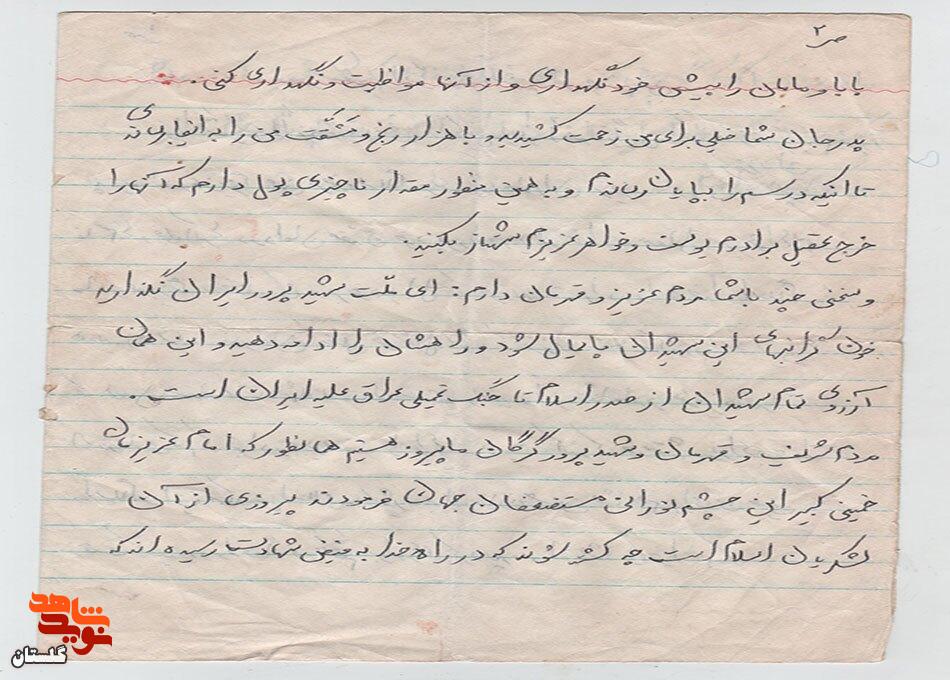 ص ۲
بابا و مامان را پیش خود نگهداری و از آنها مواظبت و نگهداری کنی.
پدر جان شما خیلی برای من زحمت کشیدید و با هزار رنج و مشقت من را به اینجا رساندی
تا اینکه درسم را بپایان رساندم و به همین منوال مقدار ناچیزی پول دارم که آنها را
خرج تحصیل برادرم یوسف و خواهر عزیزم شهناز بکنید.
و سخنی چند با شما مردم عزیز و قهرمان دارم: ای ملّت شهید پرور ایران نگذارید
خون گرانبهای این شهیدان پایمال شود و راهشان را ادامه دهید و این همان
آرزوی تمام شهیدان از صدر اسلام تا جنگ تحمیلی عراق علیه ایران است.
مردم شریف و قهرمان و شهید پرور گرگان ما پیروز هستیم همانطور که امام عزیزمان
خمینی کبیر این چشم نورانی مستضعفان جهان فرمودند پیروزی از آن
لشکریان اسلام است چه کشته شوند که در راه خدا به فیض شهادت رسیده‌اند که
نوید شاهد
گلستان